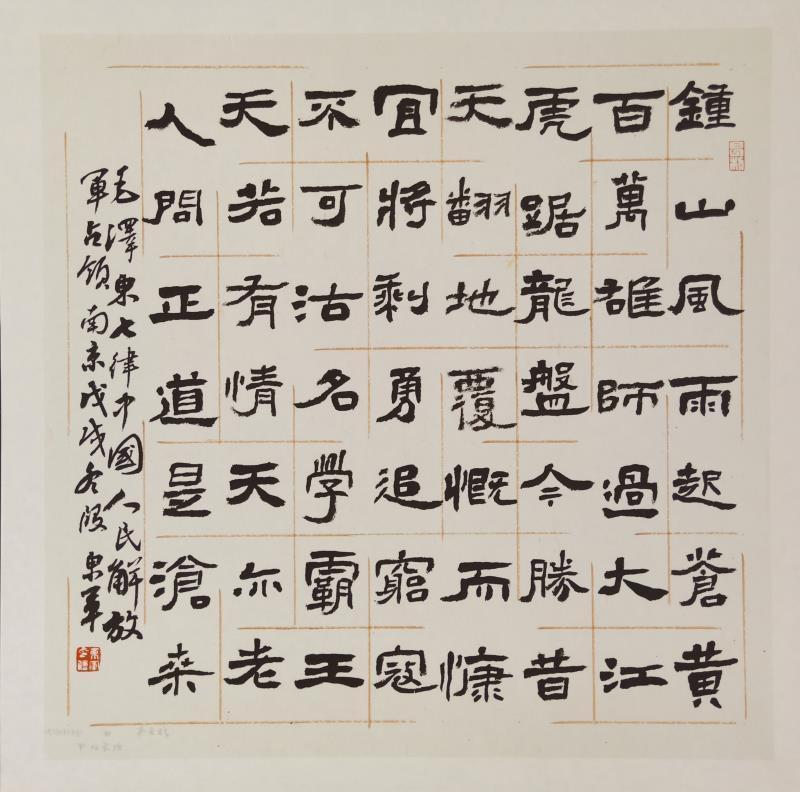 鍾山風雨起蒼黃
百萬雄師過大江
虎踞龍盤今勝昔
天翻地覆慨而慷
宜將剩勇追窮寇
不可沽名學霸王
天若有情天亦老
人間正道是滄桒
毛澤東七律中國人民解放
軍占領南京戊戌冬段東軍